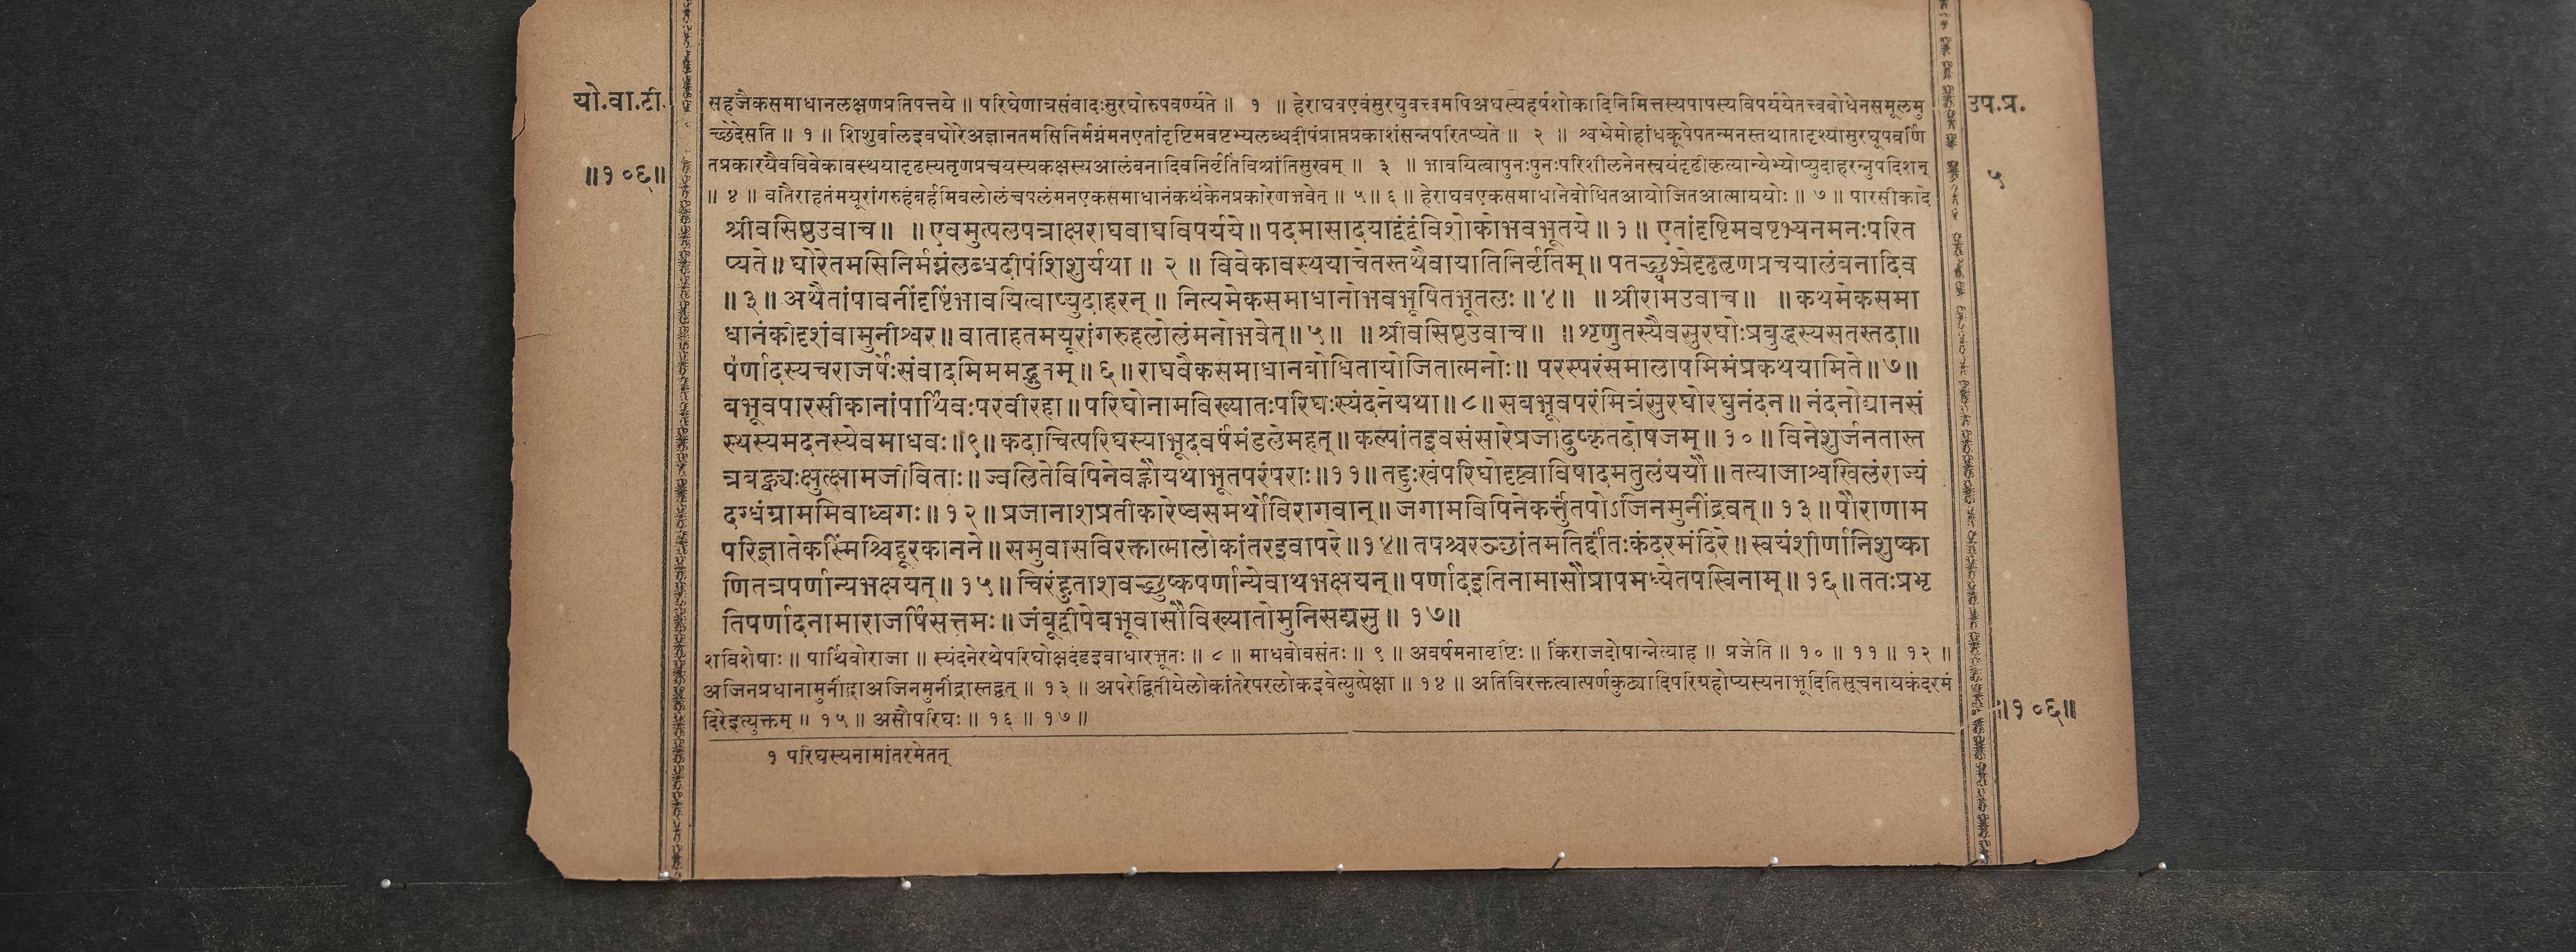 यो.वा.टी.
॥१०६॥
सहजैकसमाधानलक्षणप्रतिपत्तये ॥ परिघेणात्रसंवादःसुरघोरुपवर्ण्यते ॥ १ ॥ हेराघवएवंसुरघुवत्त्वमपिअघस्यहर्षशोकादिनिमित्तस्यपापस्यविपर्ययेतत्त्वबोधेनसमूलमु
च्छेदेसति ॥ १ ॥ शिशुर्बालइवघोरेअज्ञानतमसिनिर्मग्नंमनएतांदृष्टिमवष्टभ्यलब्धदीपंप्राप्तप्रकाशंसन्नपरितप्यते ॥ २ ॥ श्वभ्रेमोहांधकूपेपतन्मनस्तथातादृश्यासुरघूपवर्णि
तप्रकारयैवविवेकावस्थयादृढस्यतृणप्रचयस्यकक्षस्यआलंबनादिवनिर्वृतिंविश्रांतिसुखम् ॥ ३ ॥ भावयित्वापुनःपुनःपरिशीलनेनस्वयंदृढीकृत्यान्येभ्योप्युदाहरन्नुपदिशन्
॥ ४ ॥ वातैराहतंमयूरांगरुहंबर्हमिवलोलंचपलंमनएकसमाधानंकथंकेनप्रकारेणभवेत् ॥ ५॥ ६ ॥ हेराघवएकसमाधानेबोधितआयोजितआत्माययोः ॥ ७ ॥ पारसीकादे
श्रीवसिष्ठउवाच॥ ॥ एवमुत्पलपत्राक्षराघवाघविपर्यये॥ पदमासादयाद्वंद्वंविशोकोभवभूतये॥ १॥ एतांदृष्टिमवष्टभ्यनमनःपरित
प्यते॥ घोरेतमसिनिर्मग्नंलब्धदीपंशिशुर्यथा॥ २ ॥ विवेकावस्थयाचेतस्तथैवायातिनिर्वृतिम्॥ पतच्छ्वभ्रेदृढतृणप्रचयालंबनादिव
॥ ३॥ अथैतांपावनींदृष्टिंभावयित्वाप्युदाहरन् ॥ नित्यमेकसमाधानोभवभूषितभूतलः॥ ४॥ ॥ श्रीरामउवाच॥ ॥ कथमेकसमा
धानंकीदृशंवामुनीश्वर॥ वाताहतमयूरांगरुहलोलंमनोभवेत्॥ ५॥ ॥ श्रीवसिष्ठउवाच॥ ॥ शृणुतस्यैवसुरघोःप्रबुद्धस्यसतस्तदा॥
पर्णादस्यचराजर्षेःसंवादमिममद्भुतम्॥ ६॥ राघवैकसमाधानबोधितायोजितात्मनोः॥ परस्परंसमालापमिमंप्रकथयामिते॥ ७॥
बभूवपारसीकानांपार्थिवःपरवीरहा॥ परिघोनामविख्यातःपरिघःस्यंदनेयथा॥ ८॥ सबभूवपरंमित्रंसुरघोरघुनंदन॥ नंदनोद्यानसं
स्थस्यमदनस्येवमाधवः॥९॥ कदाचित्परिघस्याभूदवर्षंमंडलेमहत्॥ कल्पांतइवसंसारेप्रजादुष्कृतदोषजम्॥ १०॥ विनेशुर्जनतास्त
त्रबह्व्यःक्षुत्क्षामजीविताः॥ ज्वलितेविपिनेवह्नौयथाभूतपरंपराः॥११॥ तद्दुःखंपरिघोदृष्ट्वाविषादमतुलंययौ॥ तत्याजाश्वखिलंराज्यं
दग्धंग्राममिवाध्वगः॥ १२॥ प्रजानाशप्रतीकारेष्वसमर्थोविरागवान्॥ जगामविपिनेकर्त्तुंतपोऽजिनमुनींद्रवत्॥ १३॥ पौराणाम
परिज्ञातेकस्मिंश्चिद्दूरकानने॥ समुवासविरक्तात्मालोकांतरइवापरे॥१४॥ तपश्चरञ्छांतमतिर्दांतःकंदरमंदिरे॥ स्वयंशीर्णानिशुष्का
णितत्रपर्णान्यभक्षयत्॥ १५॥ चिरंहुताशवच्छुष्कपर्णान्येवाथभक्षयन्॥ पर्णादइतिनामासौप्रापमध्येतपस्विनाम्॥ १६॥ ततःप्रभृ
तिपर्णादनामाराजर्षिसत्तमः॥ जंबूद्वीपेबभूवासौविख्यातोमुनिसद्मसु॥ १७॥
शविशेषाः ॥ पार्थिवोराजा ॥ स्यंदनेरथेपरिघोक्षदंडइवाधारभूतः ॥ ८ ॥ माधवोवसंतः ॥ ९ ॥ अवर्षमनावृष्टिः ॥ किंराजदोषान्नेत्याह ॥ प्रजेति ॥ १० ॥ ११ ॥ १२ ॥
अजिनप्रधानामुनींद्राअजिनमुनींद्रास्तद्वत् ॥ १३ ॥ अपरेद्वितीयेलोकांतरेपरलोकइवेत्युत्प्रेक्षा ॥ १४ ॥ अतिविरक्तत्वात्पर्णकुट्यादिपरिग्रहोप्यस्यनाभूदितिसूचनायकंदरमं
दिरेइत्युक्तम् ॥ १५ ॥ असौपरिघः ॥ १६ ॥ १७ ॥
१ परिघस्यनामांतरमेतत्
उप.प्र.
५
॥१०६॥